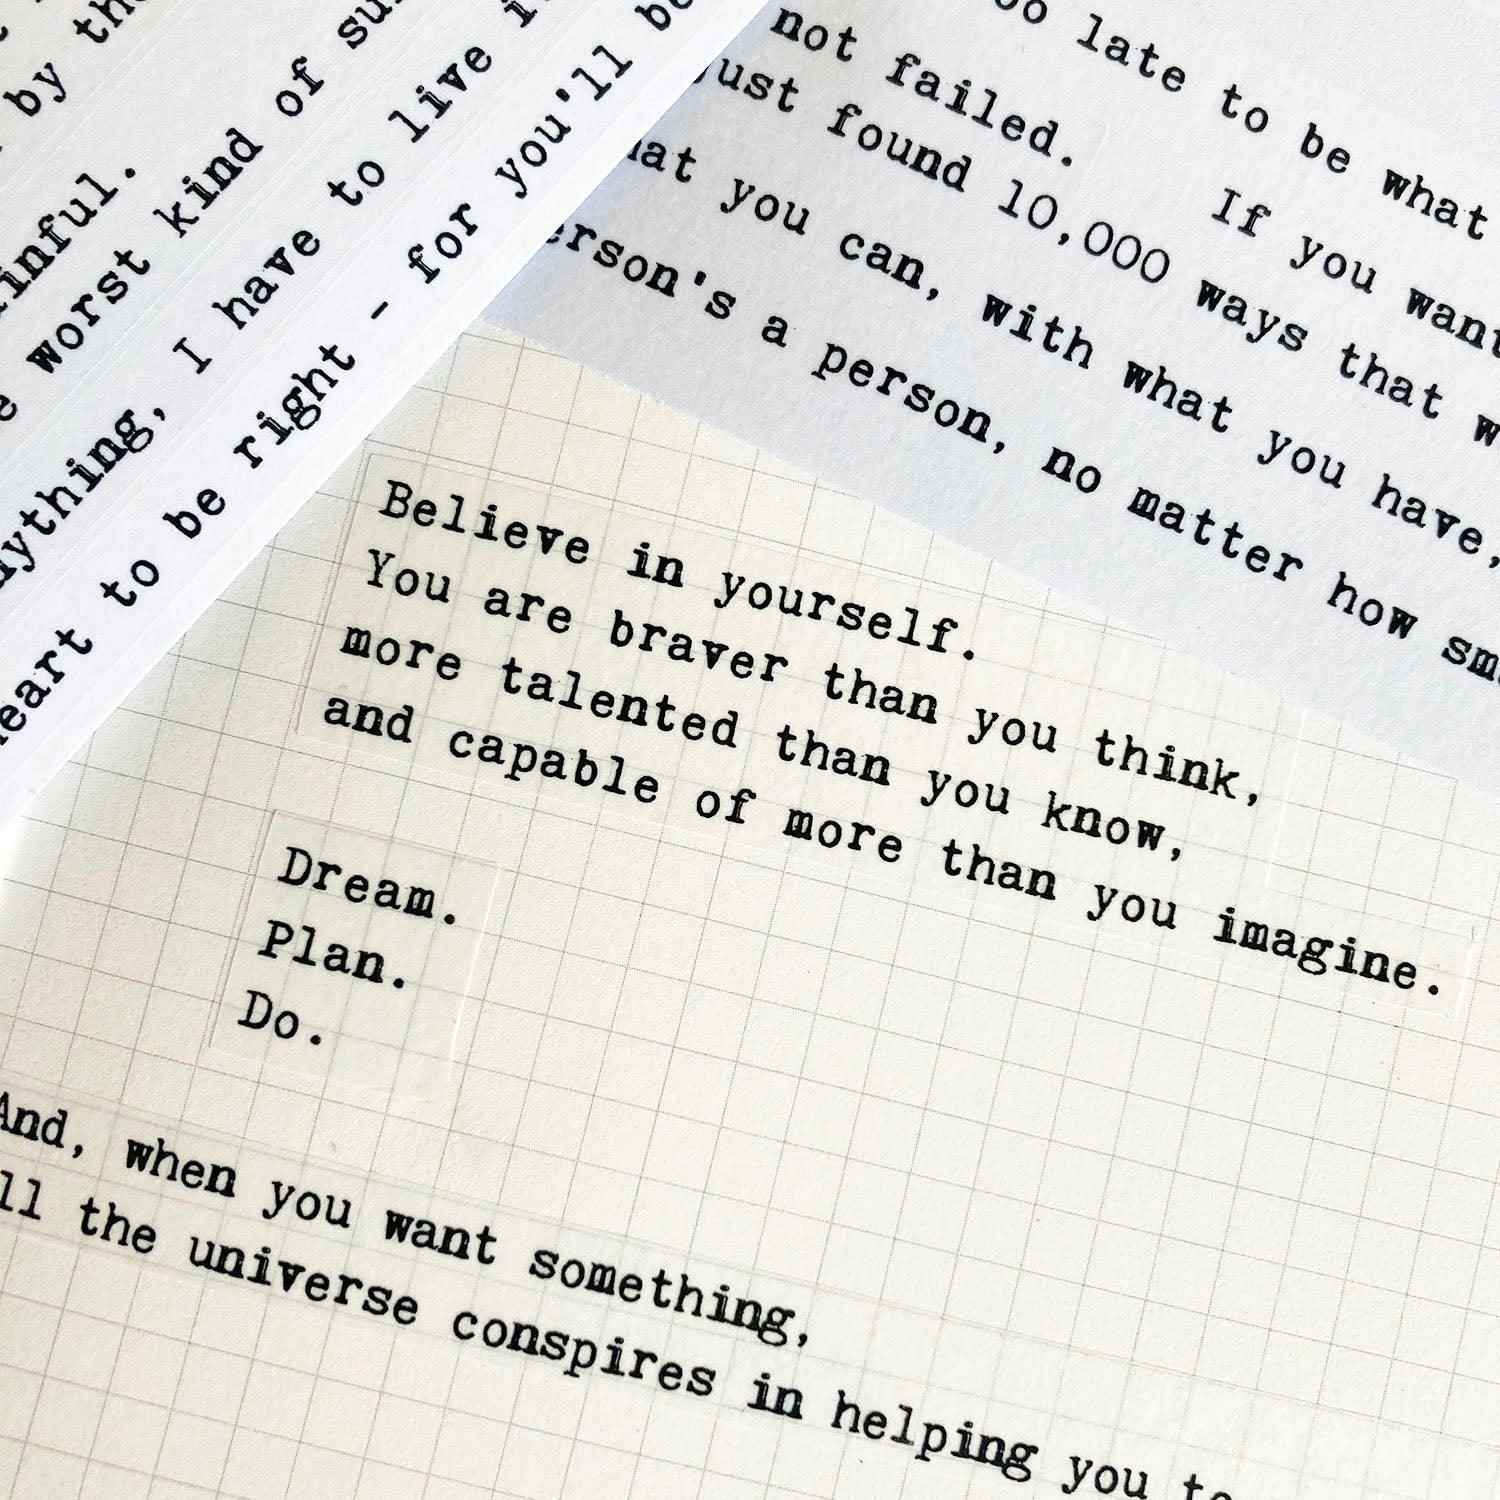 by
of
painful.
worst kind of
anything, I have to live
heart to be right - for you'll be
too late to be what
not failed. If you want
just found 10,000 ways that
what you can, with what you have,
person's a person, no matter how
Believe in yourself.
You are braver than you think,
more talented than you know,
and capable of more than you imagine.
Dream.
Plan.
Do.
And, when you want something,
all the universe conspires in helping you to